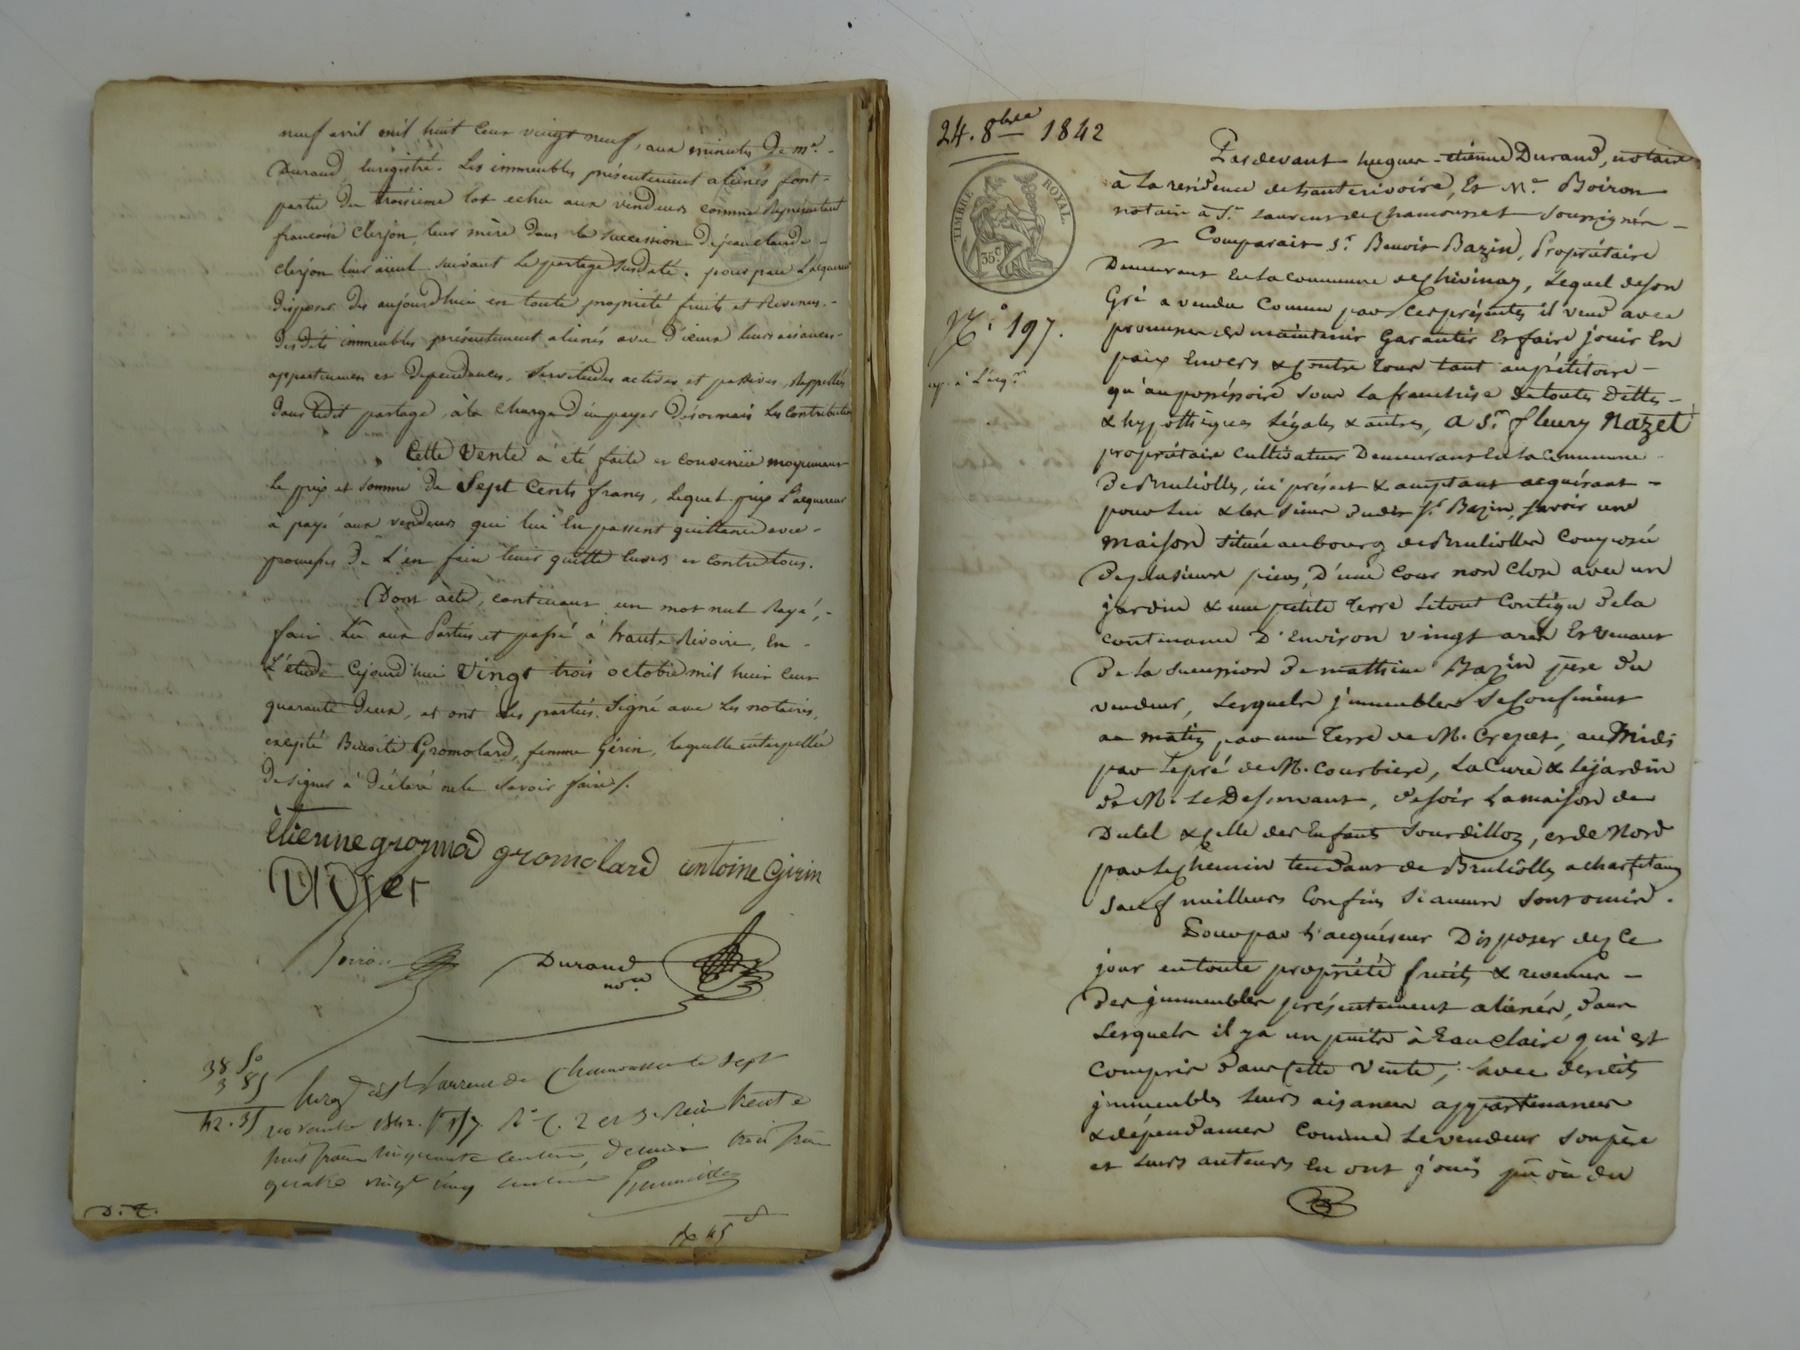 neuf avril mil huit cent vingt neuf, aux minutes de me.
Durand Enregistré. Les immeubles présentement alienés font
partie du troisieme lot echu aux vendeurs comme Représentant
francoise Clerjon, leur mère dans la succession de jean claude
clerjon leur aïeul suivant le partage susdaté. pour par l'acquereur
disposer dès aujourd'hui en toute propriété fruits et Revenus
desdits immeubles présentement alienés avec d'iceux leurs aisances
appartenances et dependances, servitudes actives et passives, Rappellées
dans ledit partage, à la charge d'en payer desormais les contributions
Cette Vente a été faite et convenüe moyennant
le prix et somme de Sept Cents francs, lequel prix l'acquereur
à payé aux vendeurs qui lui en passent quittance avec
promesse de l'en faire tenir quitte envers et contre tous.
Dont acte, contenant un mot nul Rayé,
fait Lu aux Parties et passé à haute Rivoire, En
L'étude Cejourd'hui Vingt trois octobre mil huit cent
quarante deux, et ont les parties signé avec les notaires,
excepté Benoite Gromolard, femme Gérin, laquelle interpellée
de signer à déclaré ne le savoir faire/.
étienne grozmod gromolard antoine Girin
Boiron Durand nore
38 fo
3 85
42.35
Enreg à St Laurent de Chamousset le sept
novembre 1842. fo 157. Ro C. 2 et 3. Reçu trente
huit francs cinquante centimes, decime trois francs
quatre vingt cinq centimes
D. t.
24. 8bre 1842
TIMBRE ROYAL.
35c
No 197.
Pardevant hugues-etienne Durand, notaire
à la residence de hauterivoire, Et Me Boiron
notaire à St Laurent de chamousset soussignés
Comparait Sr Benoit Bazin, Propriétaire
Demeurant En la commune de Chevinay, Lequel de son
Gré a vendu comme par les présentes il vend avec
promesse de maintenir Garantir Et faire jouir En
paix Envers & contre tous tant au pétitoire
qu'au possessoire sous la franchise de toutes dettes
& hypothèques Légales & autres, a Sr fleury Nazet
propriétaire cultivateur Demeurant En la commune
de Brullioles, ici présent & acceptant acquérant
pour lui & les siens dudit Sr Bazin, savoir une
maison située au bourg de Brullioles Composé
de plusieurs pieces, D'une Cour non Close avec un
jardin & une petite Terre Le tout Contigu de la
contenance D'Environ vingt ares Et venant
de la succession de mathieu Bazin père du
vendeur, Lesquels jmmeubles se Confinent
au matin par une Terre de M. Crepet, au Midi
par Le pré de M. Courbiere, La Cure & Le jardin
de M. Le Desservant, de soir La maison de
Dutel & celle des Enfants Sourdillon, et de Nord
par Le Chemin tendant de Brullioles a
sauf meilleurs Confins si aucun sont omis.
Pour par L'acquéreur Disposer dez Ce
jour en toute propriété fruits & revenus
des jmmeubles présentement alienés, dans
Lesquels il y a un puits à Eau claire qui est
Compris dans Cette vente, avec desdits
jmmeubles leurs aisances appartenances
& dépendances comme Le vendeur son père
et Leurs auteurs En ont joui pû ou du